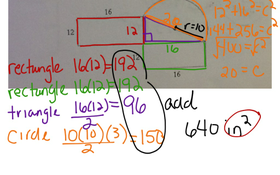 16
12
12
20
r=10
16
12
16
12²+16²=c²
144+256=c²
√400=√c²
20=c
rectangle 16(12)=192
rectangle 16(12)=192
triangle 16(12)/2=96
circle 10(10)(3)/2=150
add
640 in²